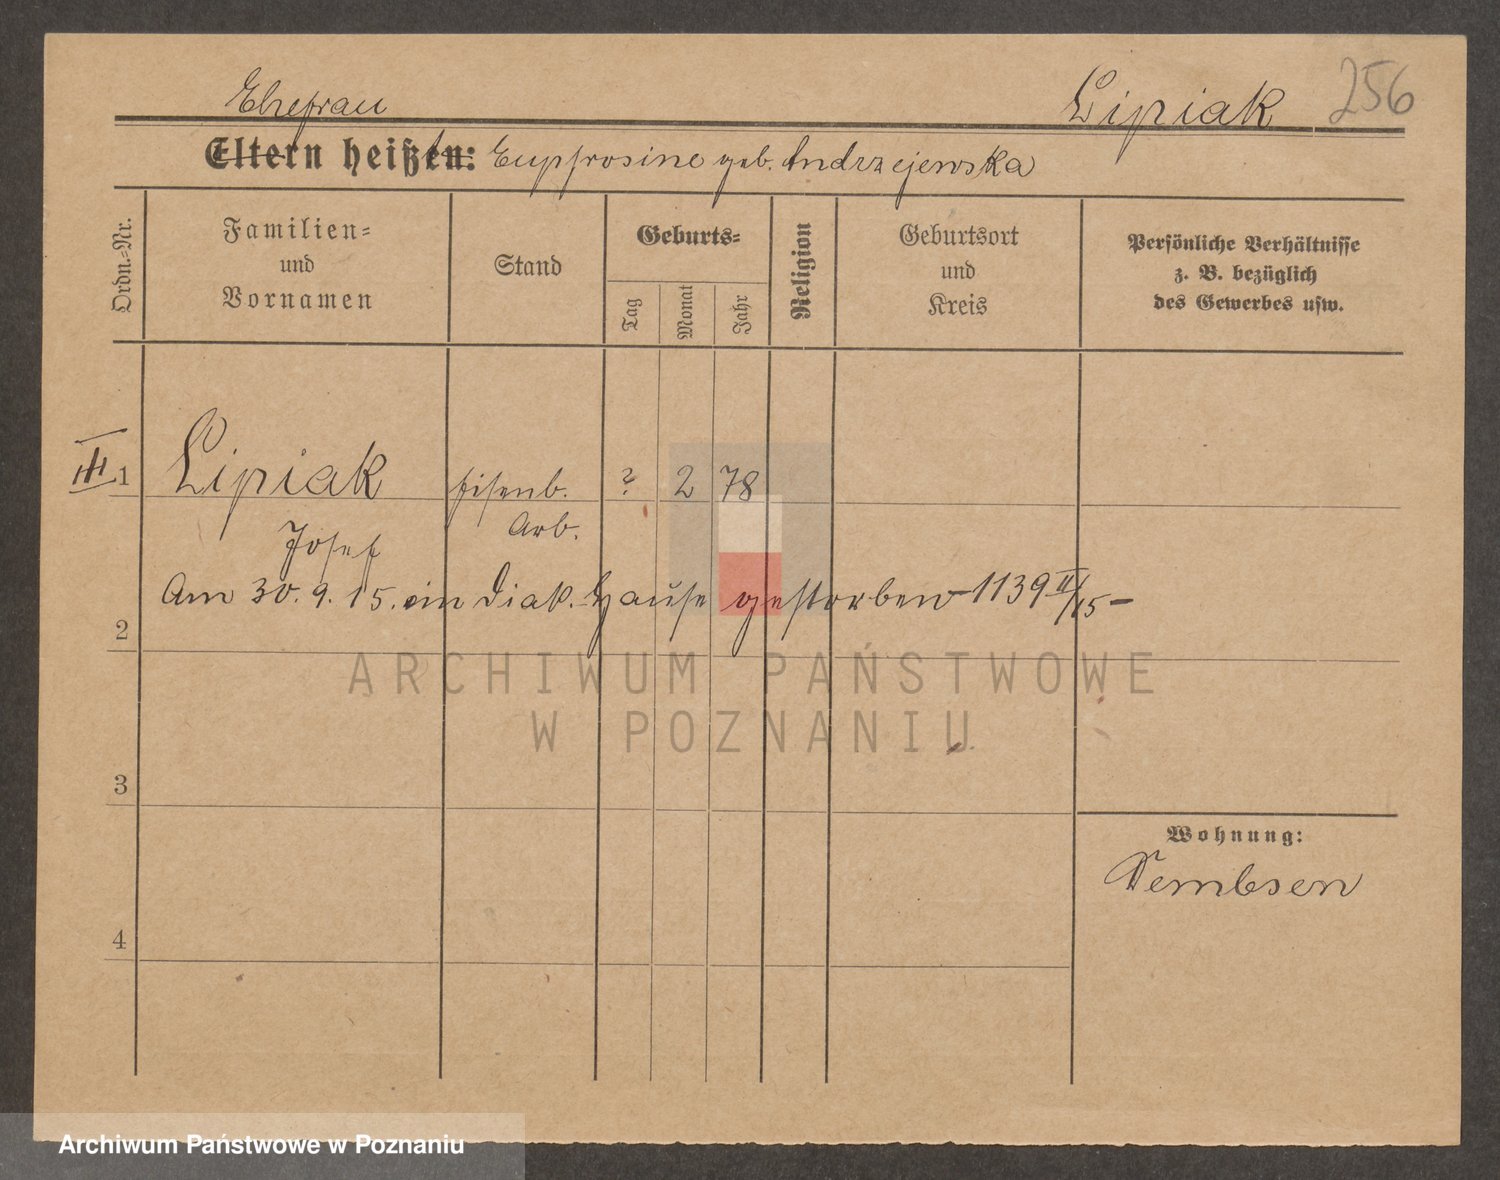 256
Ehefrau Lipiak
Eltern heißen: Euphrosine geb. Andrzejewska
Ordn.-Nr.
Familien-
und
Vornamen
Stand
Geburts-
Tag
Monat
Jahr
Religion
Geburtsort
und
Kreis
Persönliche Verhältnisse
z. B. bezüglich
des Gewerbes usw.
III 1 Lipiak Eisenb. ? 2 78
Josef Arb.
Am 30. 9. 15. im Diak. Hause gestorben 1139 II/15 –
2
3
Wohnung:
Dembsen
4
ARCHIWUM PAŃSTWOWE
W POZNANIU
Archiwum Państwowe w Poznaniu